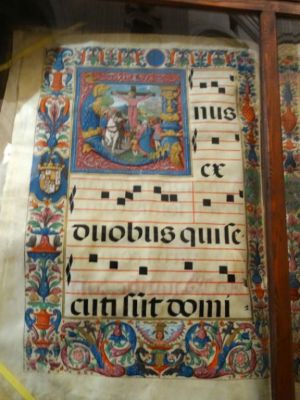 Unus
ex
duobus quise
cuti sūt domi